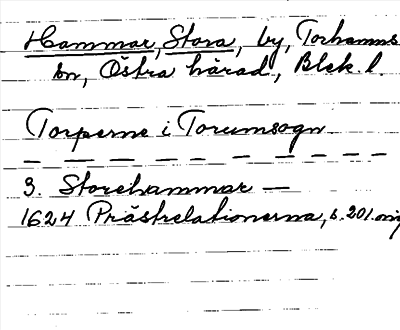 Hammar, Stora, by, Torhamns
sn, Östra härad, Blek. l.
Torperne i Torumsogn
— — — — — — — — —
3. Storehammar —
1624 Prästrelationerna, s. 201.